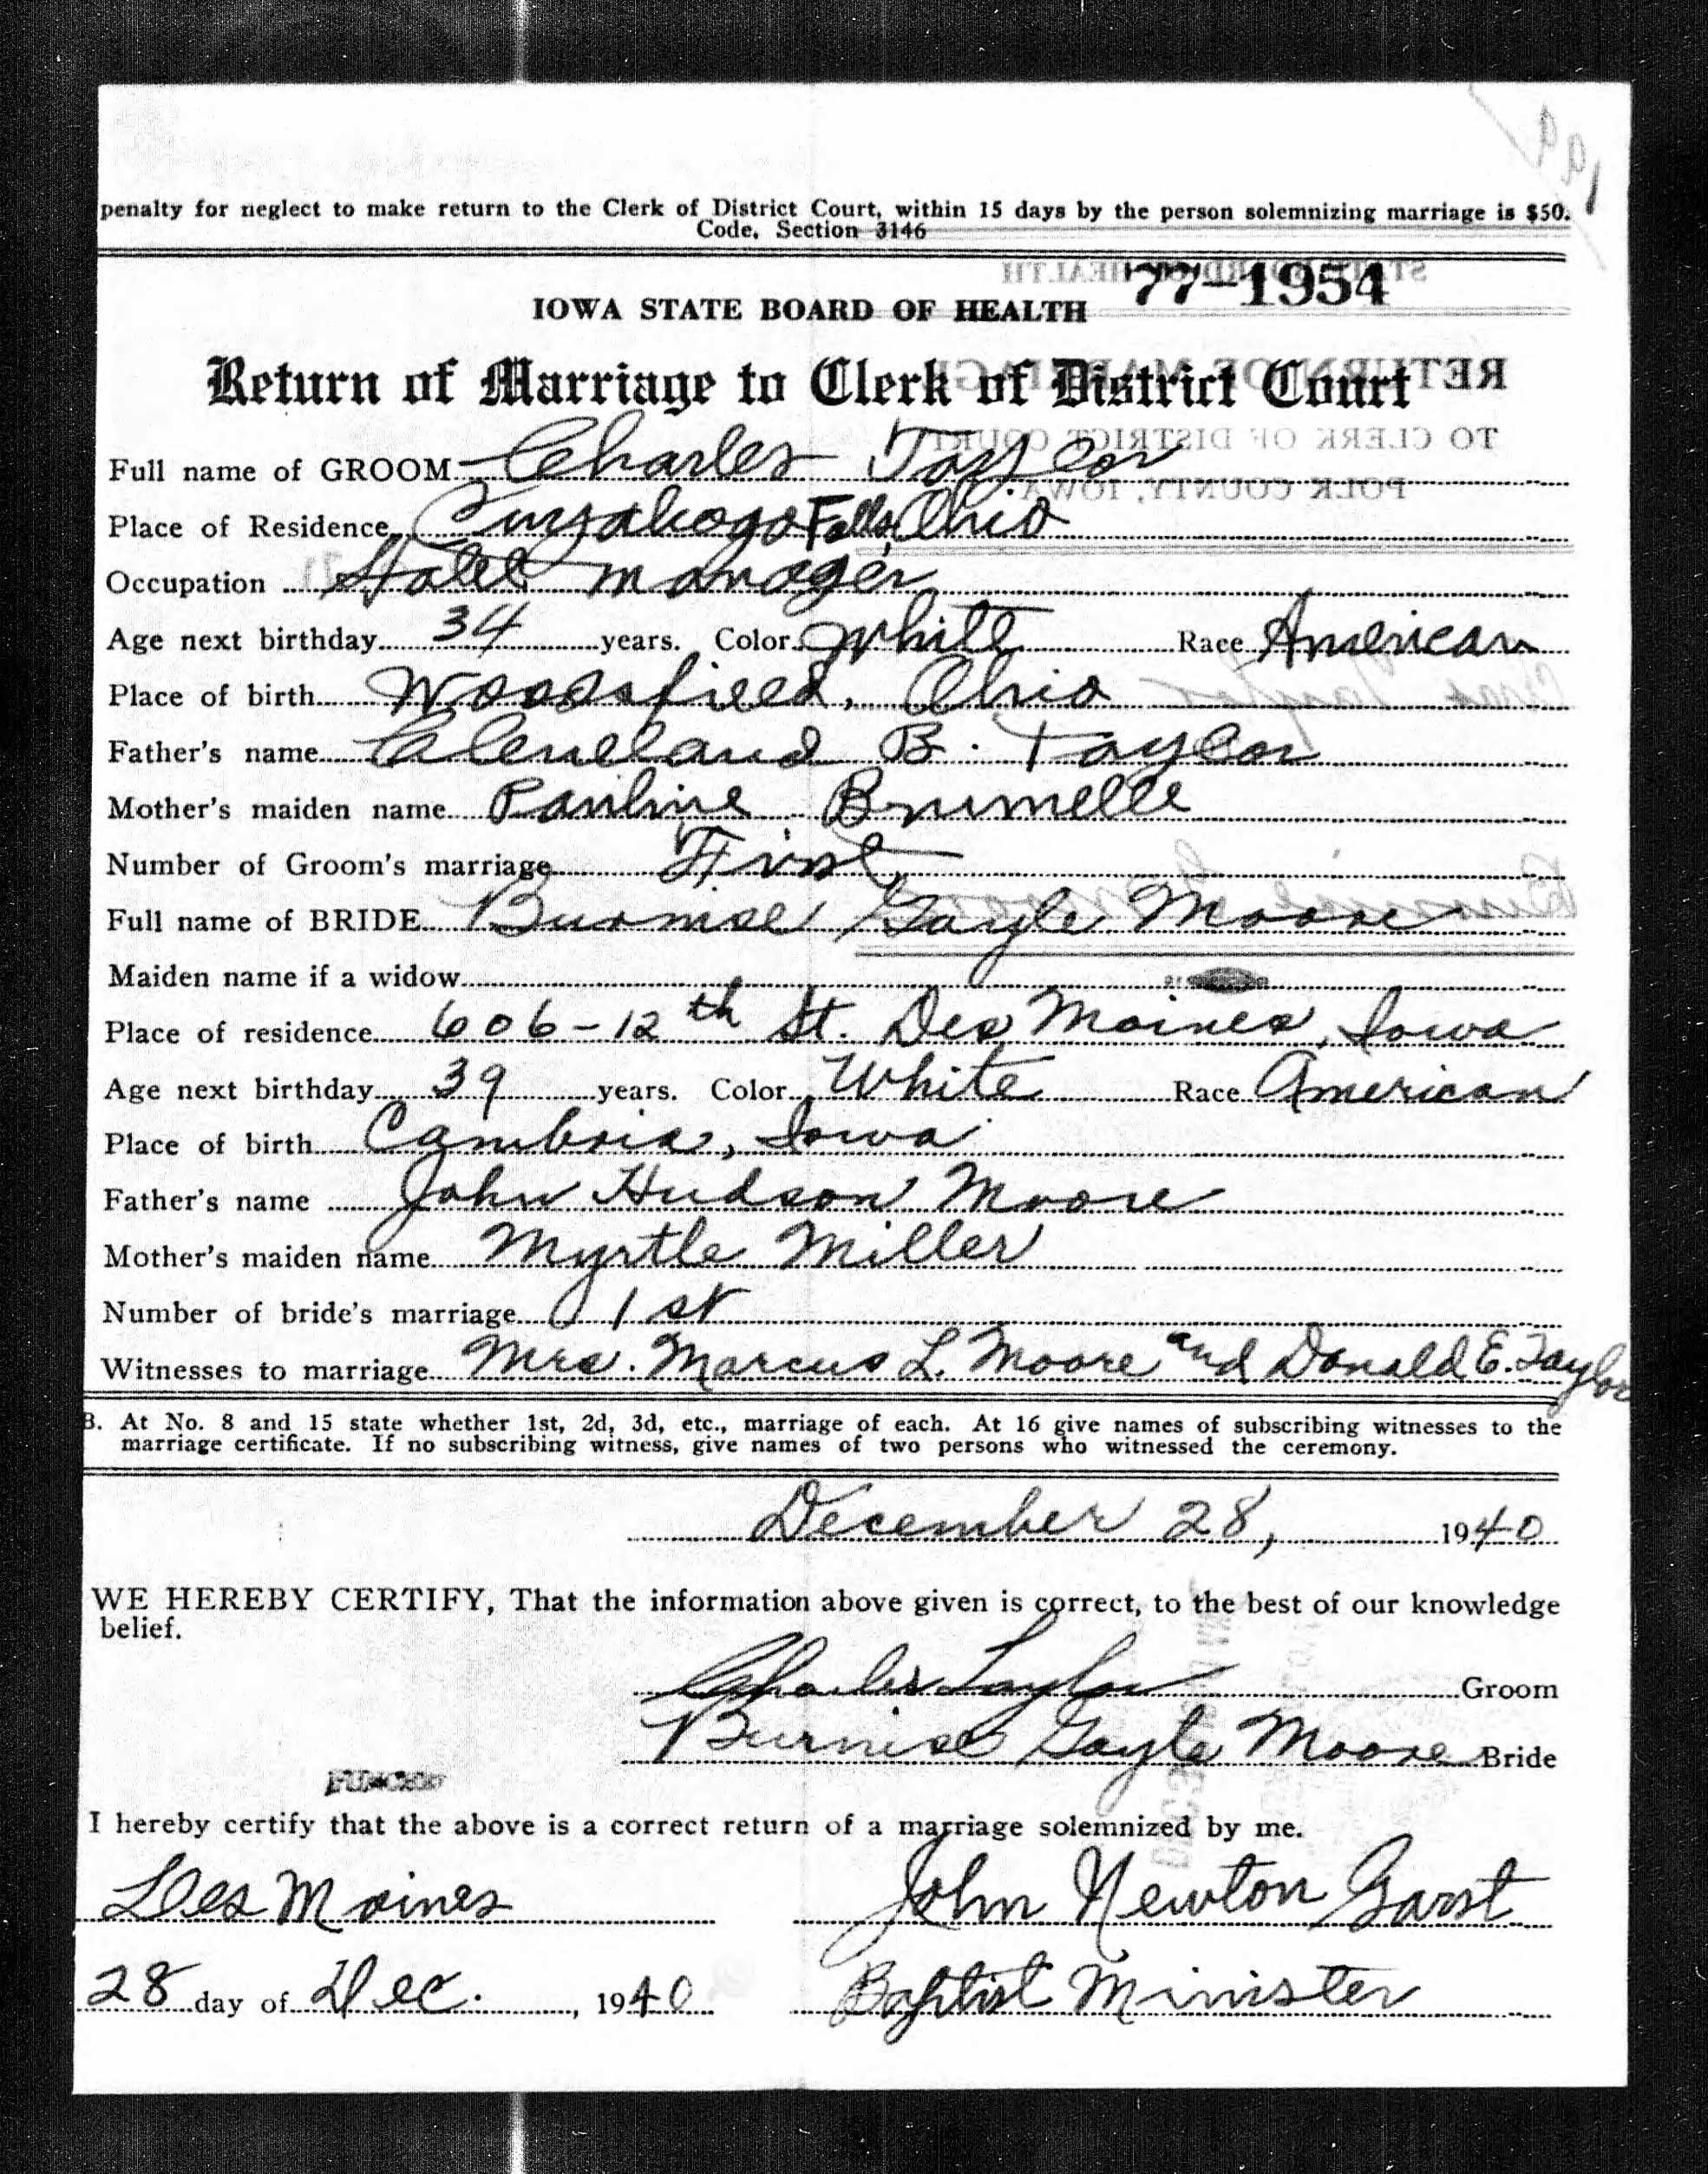 penalty for neglect to make return to the Clerk of District Court, within 15 days by the person solemnizing marriage is $50.
Code, Section 3146
77-1954
IOWA STATE BOARD OF HEALTH
Return of Marriage to Clerk of District Court
Full name of GROOM Charles Taylor
Place of Residence Cuyahoga Falls, Ohio
Occupation Hotel manager
Age next birthday 34 years. Color White Race American
Place of birth Woodsfield, Ohio
Father's name Cleveland B. Taylor
Mother's maiden name Pauline Brumelle
Number of Groom's marriage First
Full name of BRIDE Burnise Gayle Moore
Maiden name if a widow
Place of residence 606-12th St. Des Moines, Iowa
Age next birthday 39 years. Color White Race American
Place of birth Cambria, Iowa
Father's name John Hudson Moore
Mother's maiden name Myrtle Miller
Number of bride's marriage 1st
Witnesses to marriage Mrs. Marcus L. Moore and Donald E. Taylor
B. At No. 8 and 15 state whether 1st, 2d, 3d, etc., marriage of each. At 16 give names of subscribing witnesses to the
marriage certificate. If no subscribing witness, give names of two persons who witnessed the ceremony.
December 28, 1940
WE HEREBY CERTIFY, That the information above given is correct, to the best of our knowledge
belief.
Charles Taylor Groom
Burnise Gayle Moore Bride
I hereby certify that the above is a correct return of a marriage solemnized by me.
Des Moines John Newton Garst
28 day of Dec., 1940 Baptist Minister